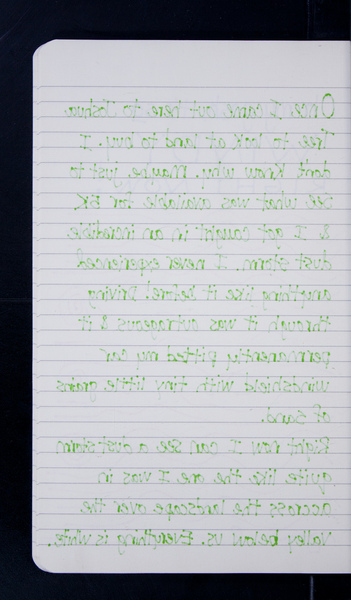 Once, I came out here to Joshua
Tree to look at land to buy. I
dont know why. Maybe, just to
see what was available for 5K
& I got caught in an incredible
dust storm. I never experienced
anything like it before! Driving
through it was outrageous & it
permanently pitted my car
windshield with tiny little grains
of sand.
Right now I can see a dust storm
quite like the one I was in
accross the landscape over the
Valley below us. Everything is white.